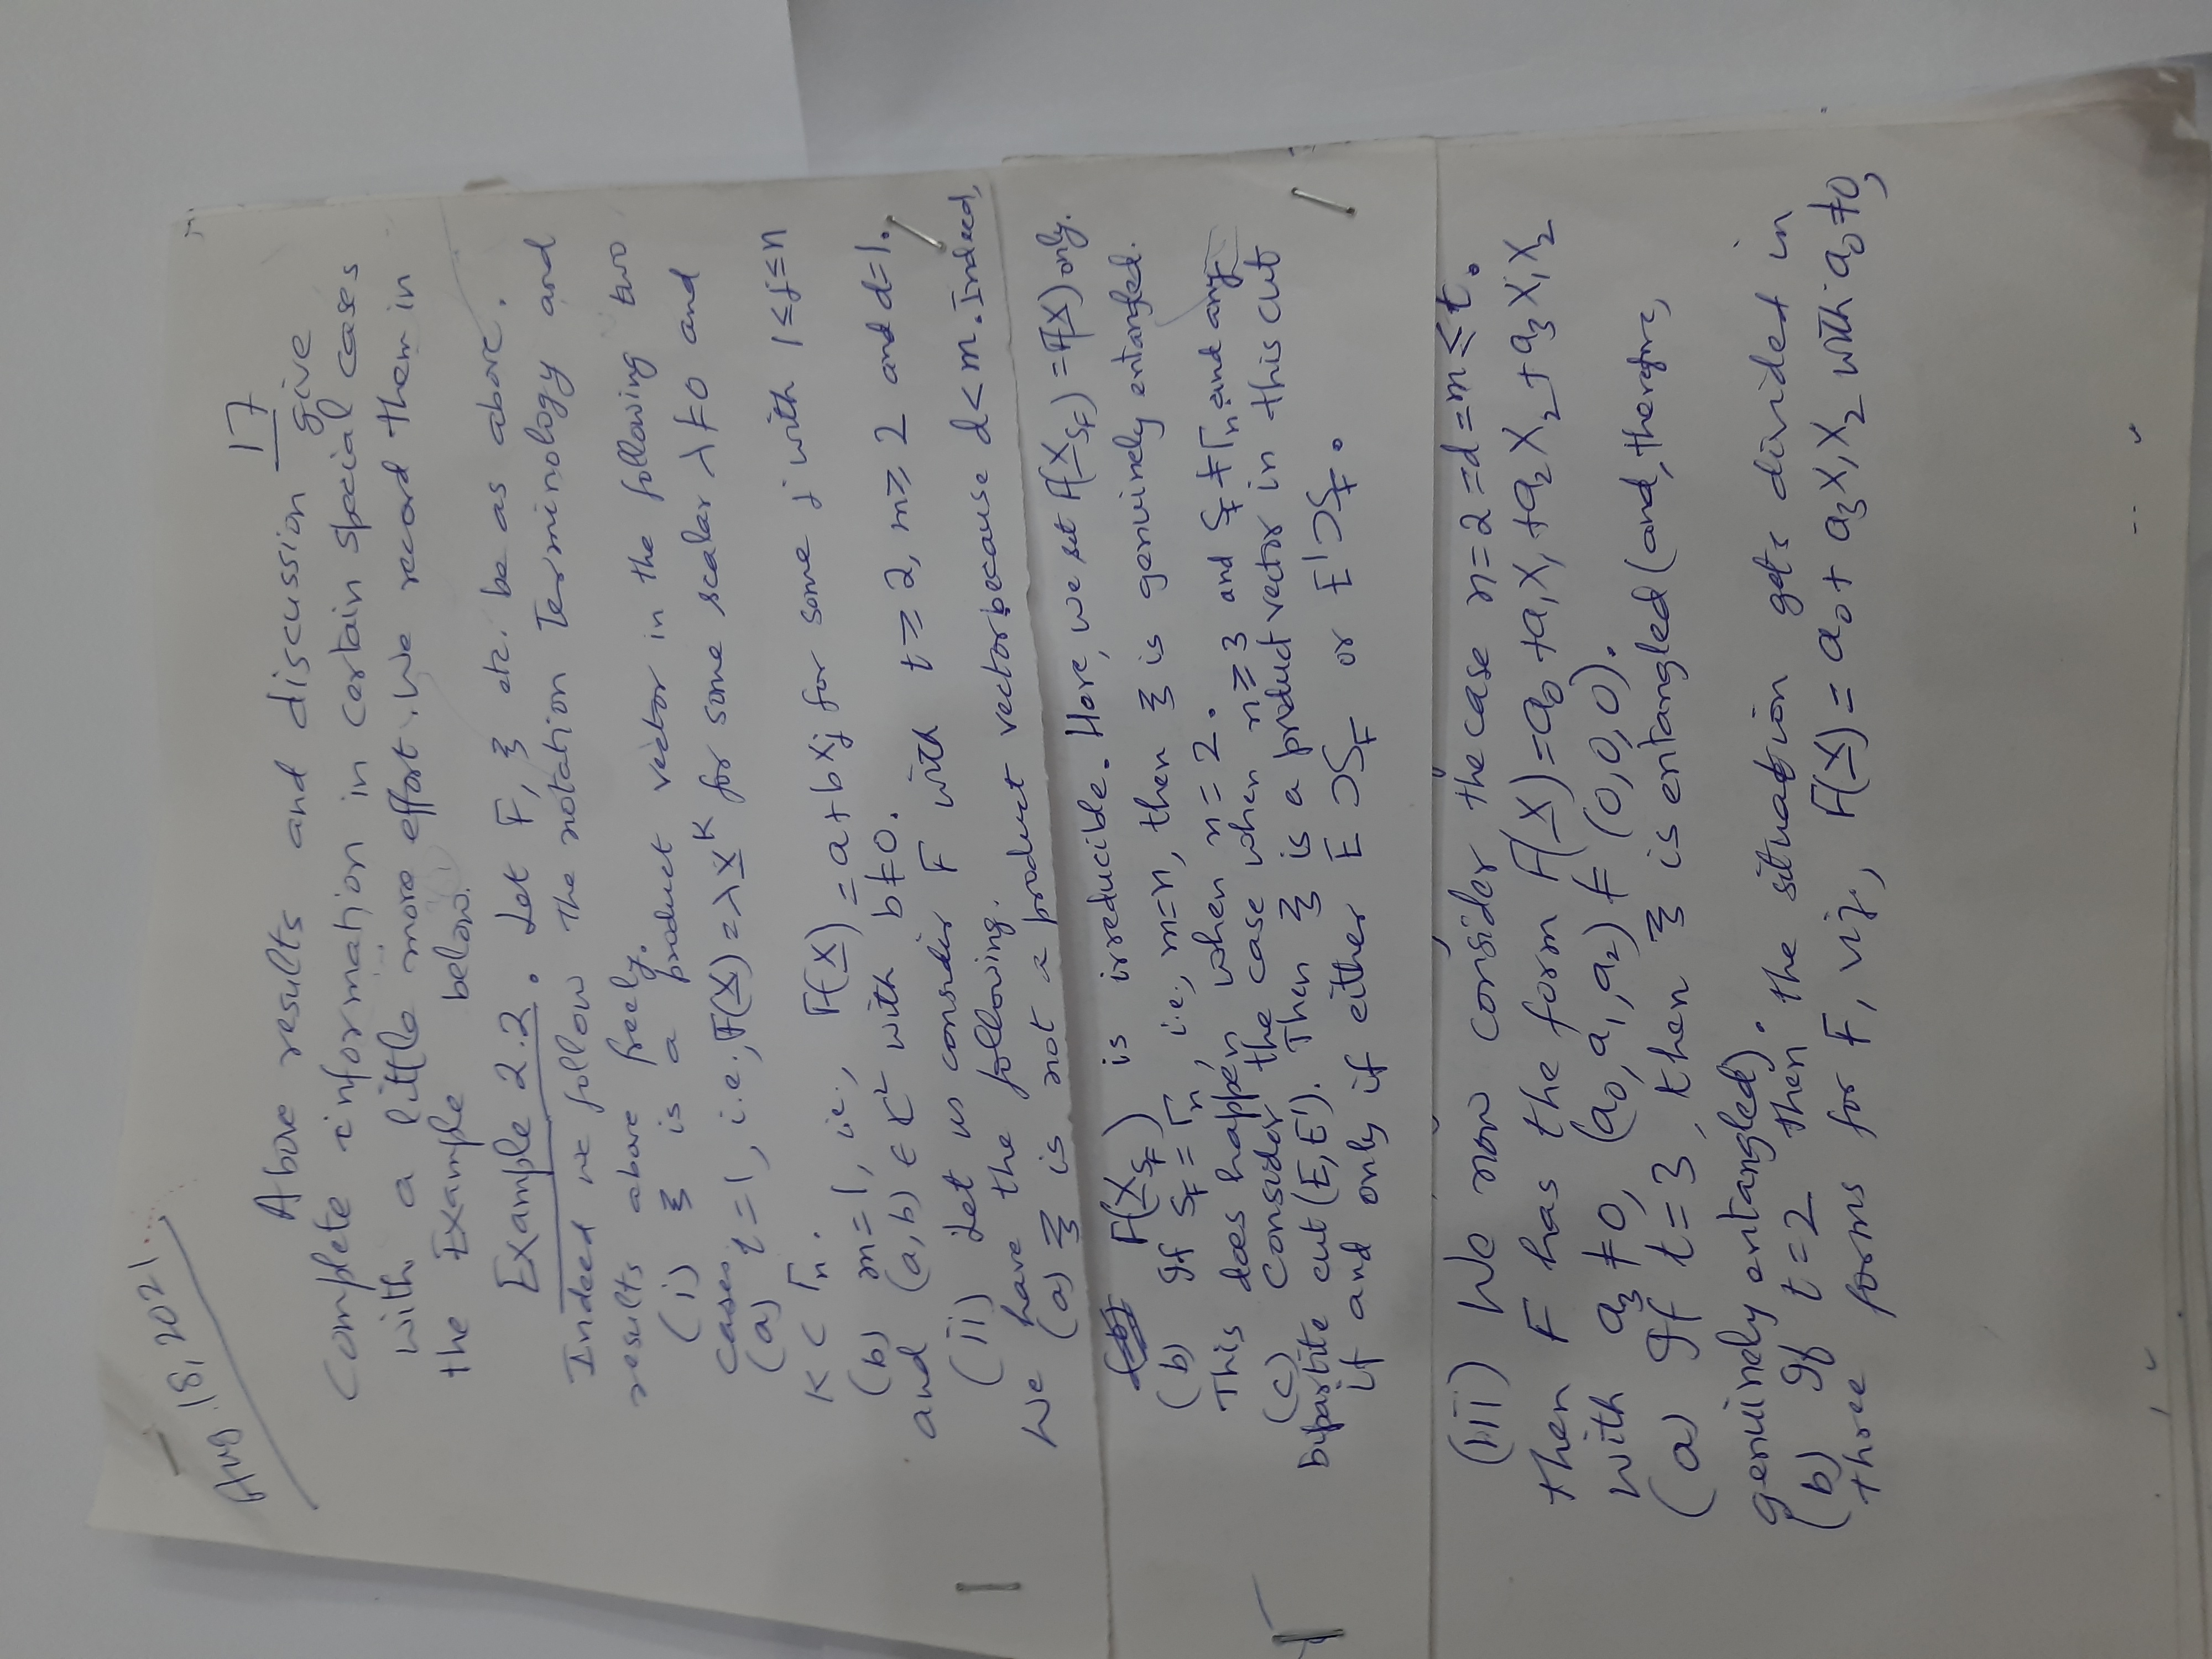 Aug. 18, 2021
17
Above results and discussion give
Complete information in certain special cases
with a little more effort. We record them in
the Example below.
Example 2.2. Let F, ξ etc. be as above.
Indeed we follow the notation Terminology and
results above freely.
(i) ξ is a product vector in the following two
cases.
(a) t=1, i.e., F(X) = λX^K for some scalar λ≠0 and
K ⊂ Γn.
(b) m=1, ie., F(X) = a+bXj for some j with 1≤j≤n
and (a,b) ∈ ℂ² with b≠0.
(ii) Let us consider F with t≥2, m≥2 and d=1.
We have the following.
(a) ξ is not a product vector because d<m. Indeed,
F(X_{S_F}) is irreducible. Here, we set F(X_{S_F}) = F(X) only.
(b) If S_F = Γn, i.e., m=n, then ξ is genuinely entangled.
This does happen when n=2.
(c) Consider the case when n≥3 and S_F ≠ Γn and any
bipartite cut (E,E'). Then ξ is a product vector in this cut
if and only if either E ⊃ S_F or E' ⊃ S_F.
(iii) We now consider the case n=2=d=m≤t.
then F has the form F(X) = a₀+a₁X₁+a₂X₂+a₃X₁X₂
with a₃≠0, (a₀,a₁,a₂) ≠ (0,0,0).
(a) If t=3, then ξ is entangled (and, therefore,
genuinely entangled).
(b) If t=2 then the situation gets divided in
three forms for F, viz., F(X) = a₀+a₃X₁X₂ with a₀≠0,